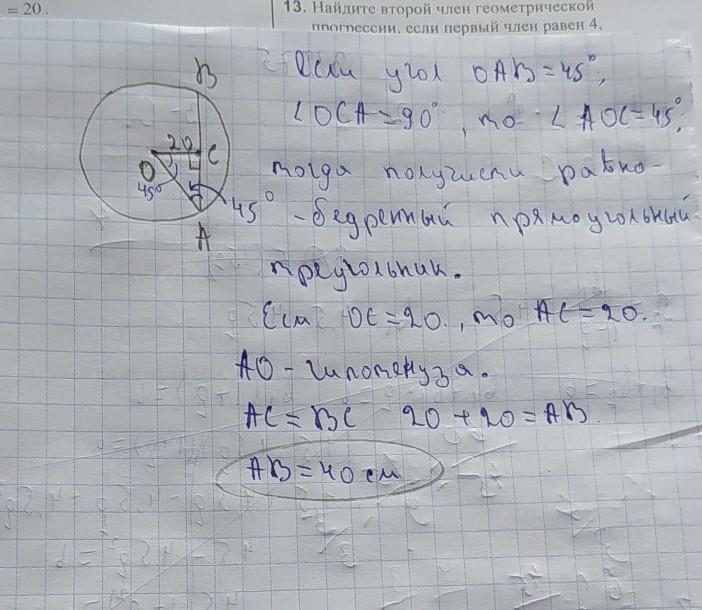 = 20.
13. Найдите второй член геометрической
прогрессии, если первый член равен 4,
B
20
C
O
45°
45°
A
Если угол OAB=45°,
∠OCA=90°, то ∠AOC=45°,
тогда получися равно-
-бедренный прямоугольный
треугольник.
Если OC=20, то AC=20.
AO - гипотенуза.
AC=BC 20+20=AB.
AB=40 см